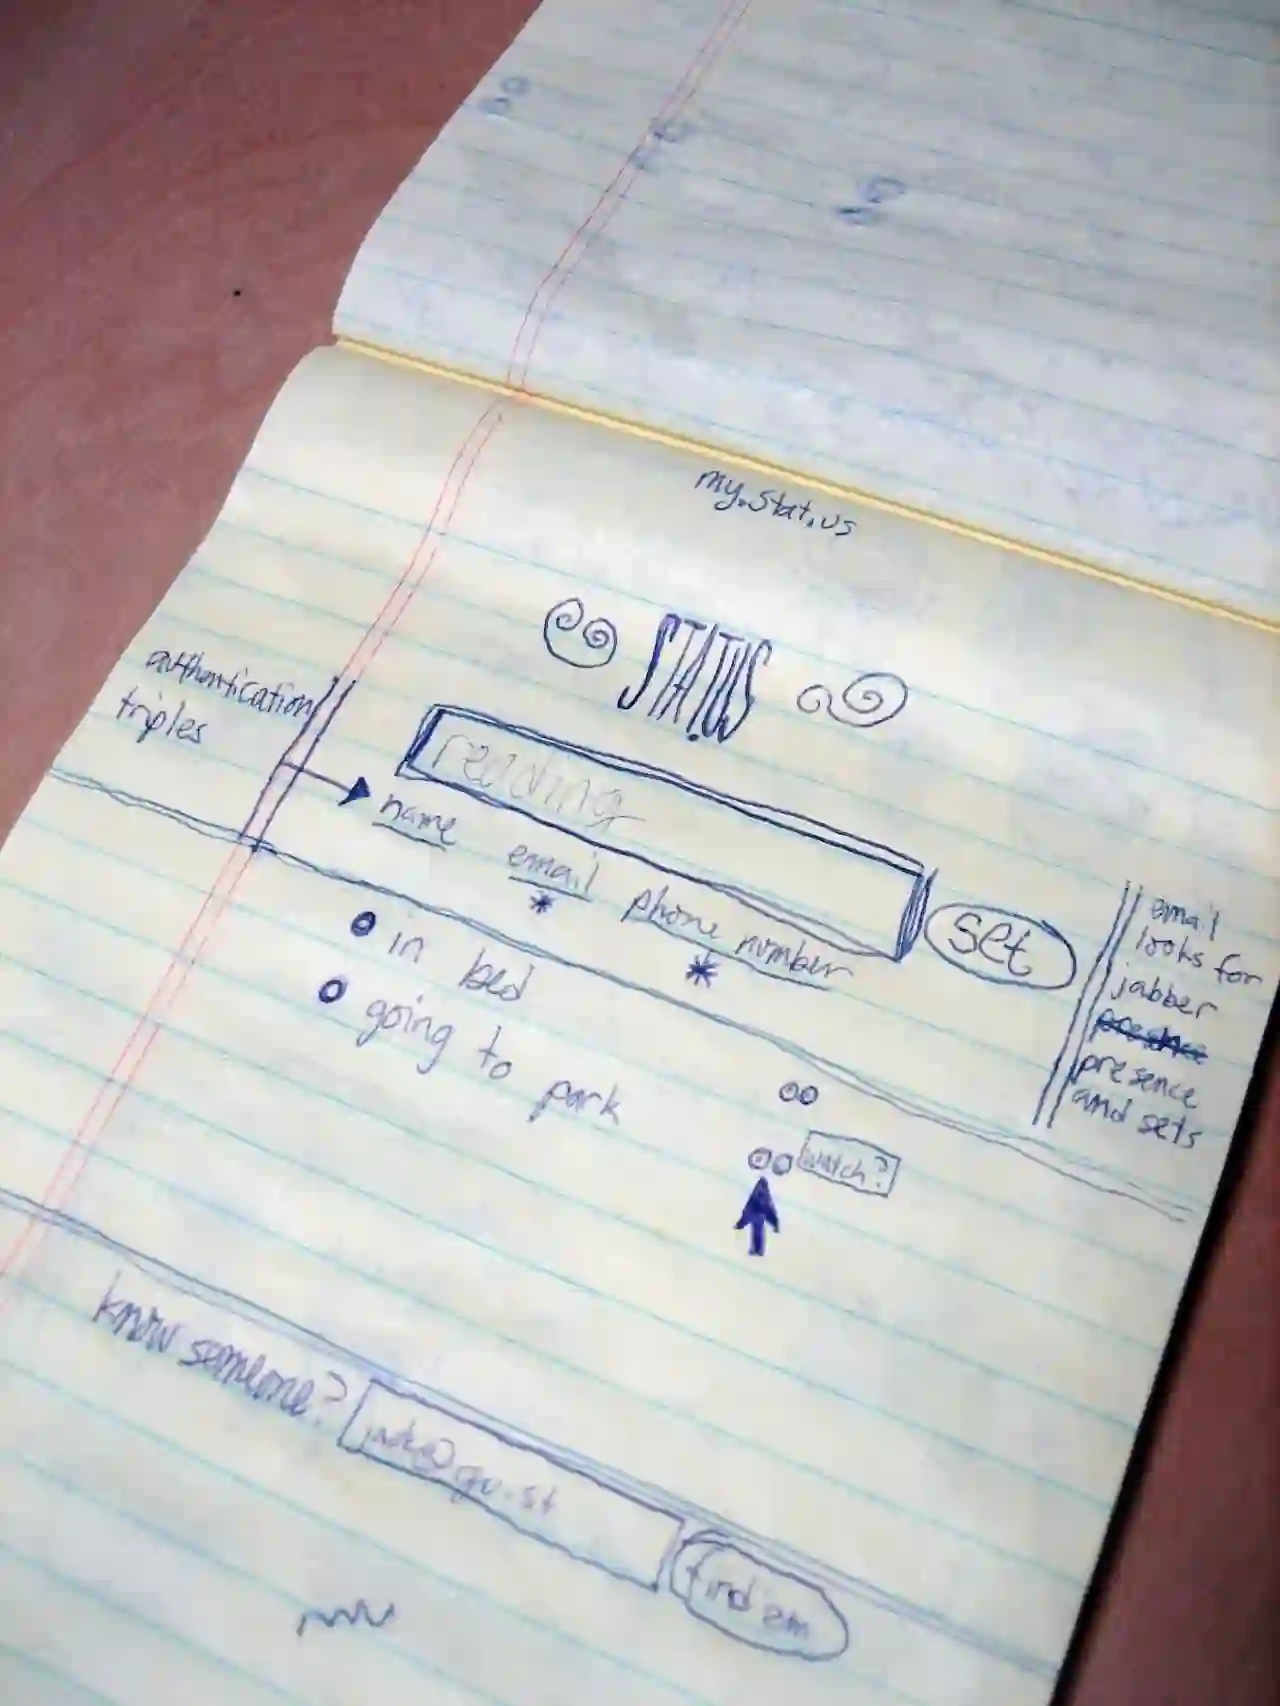 my.stat.us
STAT.US
authentication
triples
reading
name
email
phone number
*
*
set
in bed
going to
park
email
looks for
jabber
presence
presence
and sets
watch?
know someone?
jack@gu.st
find 'em